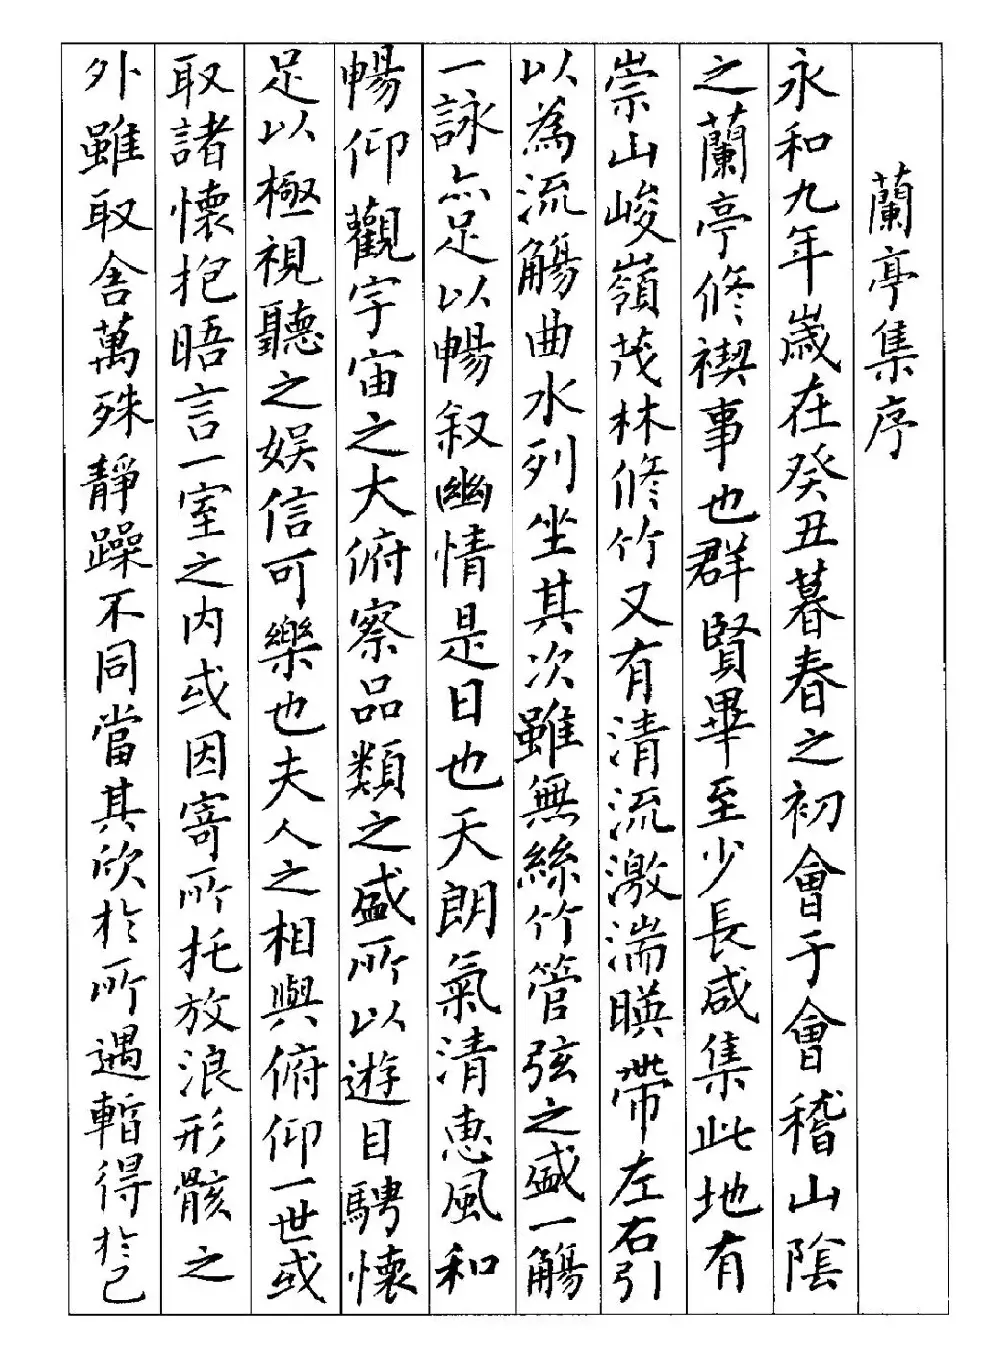 蘭亭集序
永和九年歲在癸丑暮春之初會于會稽山陰
之蘭亭修禊事也群賢畢至少長咸集此地有
崇山峻嶺茂林修竹又有清流激湍暎帶左右引
以為流觴曲水列坐其次雖無絲竹管弦之盛一觴
一詠亦足以暢叙幽情是日也天朗氣清惠風和
暢仰觀宇宙之大俯察品類之盛所以遊目騁懷
足以極視聽之娛信可樂也夫人之相與俯仰一世或
取諸懷抱晤言一室之内或因寄所托放浪形骸之
外雖取舍萬殊靜躁不同當其欣於所遇暫得於己